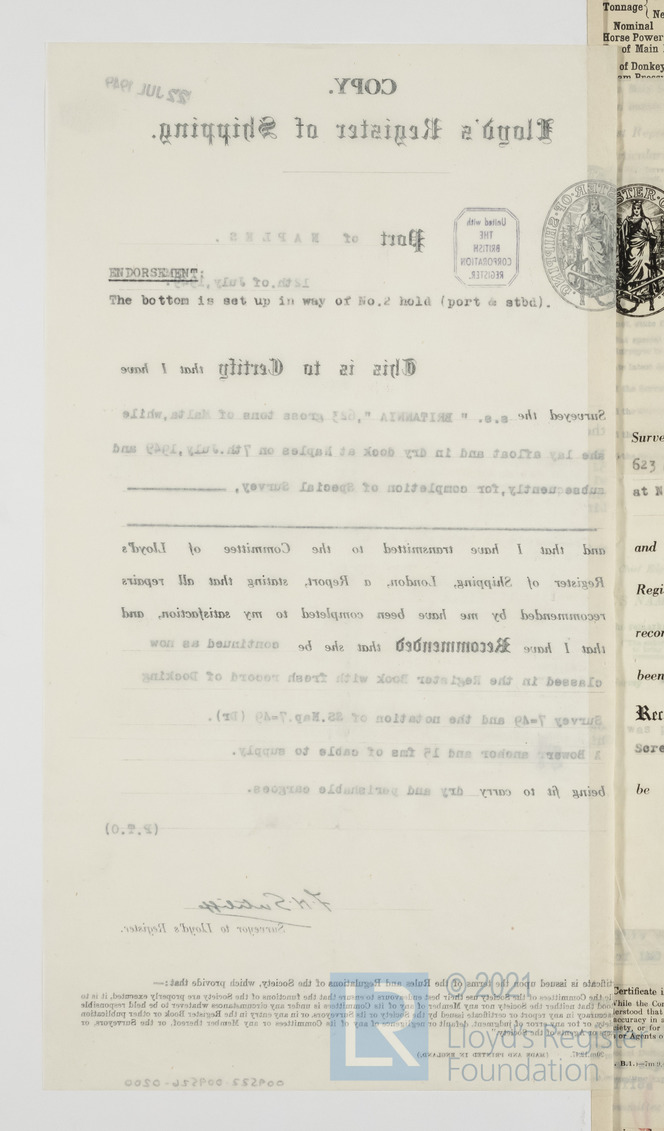 COPY.
22 JUL 1949
Lloyd's Register of Shipping.
United with
THE
BRITISH
CORPORATION
REGISTER.
Port of NAPLES.
12th.of July,1949.
ENDORSEMENT:
The bottom is set up in way of No.2 hold (port & stbd).
This is to Certify that I have
Surveyed the s.s. " BRITANNIA ",623 gross tons of Malta,while
she lay afloat and in dry dock at Naples on 7th.July,1949 and
subsequently,for completion of Special Survey,
and that I have transmitted to the Committee of Lloyd's
Register of Shipping, London, a Report, stating that all repairs
recommended by me have been completed to my satisfaction, and
that I have Recommended that she be continued as now
classed in the Register Book with fresh record of Docking
Survey 7=49 and the notation of SS.Nap.7=49 (Dr).
1 Bower anchor and 15 fms of cable to supply.
being fit to carry dry and perishable cargoes.
(P.T.O)
Surveyor to Lloyd's Register.
Certificate is issued upon the terms of the Rules and Regulations of the Society, which provide that:—
(MADE AND PRINTED IN ENGLAND.)
© 2021
LR Lloyd's Register
Foundation
009522-009526-0200
Tonnage
Nominal
Horse Power
of Main
of Donkey
Surve
623
at N
and
Regi
recor
been
Rec
Scre
be
Certificate i
While the Com